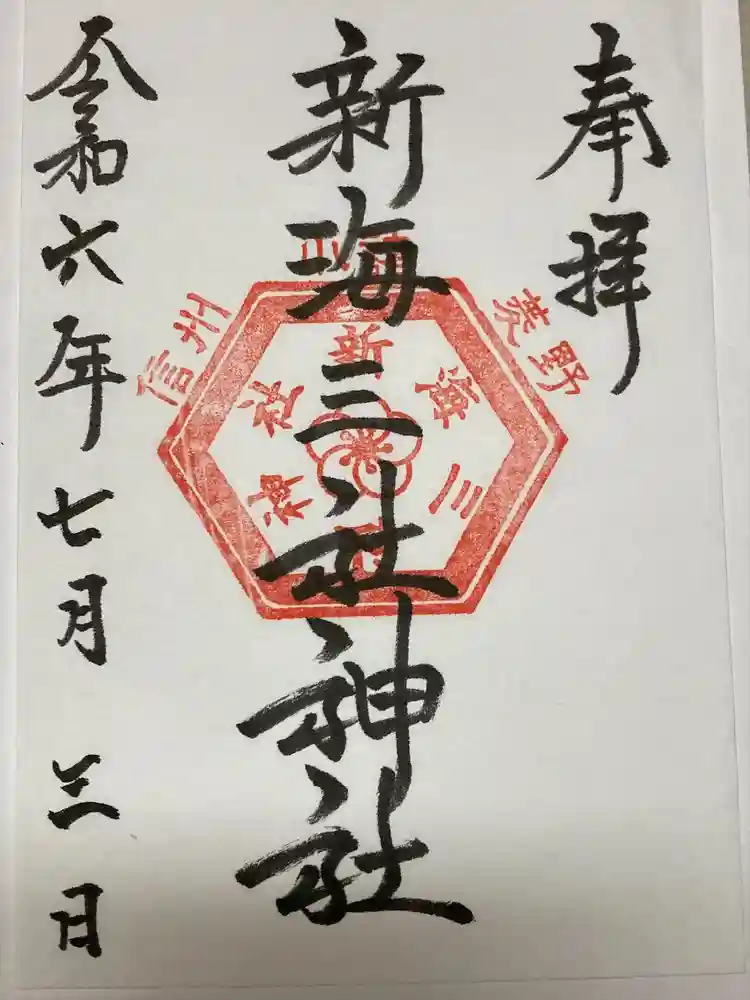 奉拝
新海三社神社
令和六年七月三日
信州
茨野
新海三社神